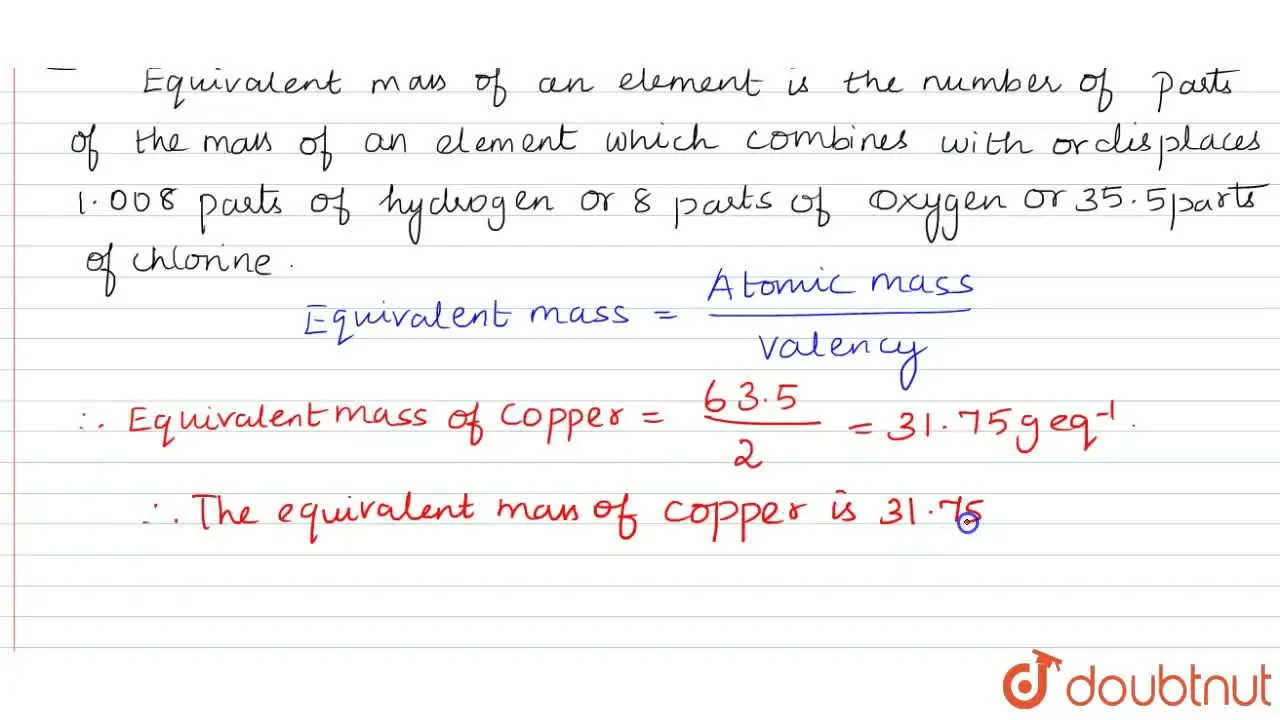 Equivalent mass of an element is the number of parts
of the mass of an element which combines with or displaces
1.008 parts of hydrogen or 8 parts of oxygen or 35.5 parts
of chlorine.
Equivalent mass = Atomic mass / valency
∴ Equivalent mass of copper = 63.5 / 2 = 31.75 g eq⁻¹.
∴ The equivalent mass of copper is 31.75
doubtnut